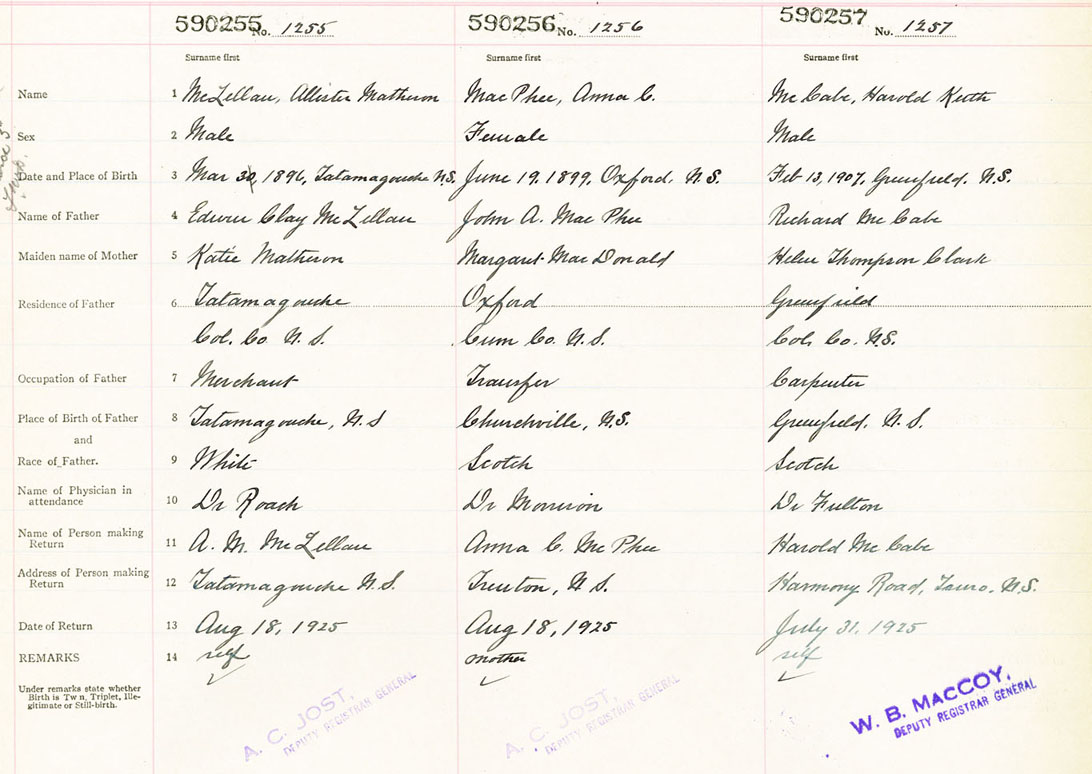 590255 No. 1255 590256 No. 1256 590257 No. 1257
Surname first Surname first Surname first
Name 1 McLellan, Allister Matheson Mac Phee, Anna C. Mc Cabe, Harold Keith
Sex 2 Male Female Male
Date and Place of Birth 3 Mar 30, 1896, Tatamagouche N.S. June 19, 1899, Oxford, N.S. Feb 13, 1907, Greenfield, N.S.
Name of Father 4 Edwin Clay McLellan John A. Mac Phee Richard Mc Cabe
Maiden name of Mother 5 Katie Matheson Margaret Mac Donald Helen Thompson Clark
Residence of Father 6 Tatamagouche Oxford Greenfield
Col. Co N.S. Cum Co. N.S. Col. Co. N.S.
Occupation of Father 7 Merchant Transfer Carpenter
Place of Birth of Father 8 Tatamagouche, N.S Churchville, N.S. Greenfield, N.S.
and
Race of Father. 9 White Scotch Scotch
Name of Physician in
attendance 10 Dr Roach Dr Morrison Dr Fulton
Name of Person making
Return 11 A. M. McLellan Anna C. Mc Phee Harold Mc Cabe
Address of Person making
Return 12 Tatamagouche N.S. Trenton, N.S. Harmony Road, Truro, N.S.
Date of Return 13 Aug 18, 1925 Aug 18, 1925 July 31, 1925
REMARKS 14 self mother self
Under remarks state whether
Birth is Twin, Triplet, Ille-
gitimate or Still-birth.
A. C. JOST,
DEPUTY REGISTRAR GENERAL
A. C. JOST,
DEPUTY REGISTRAR GENERAL
W. B. MACCOY,
DEPUTY REGISTRAR GENERAL